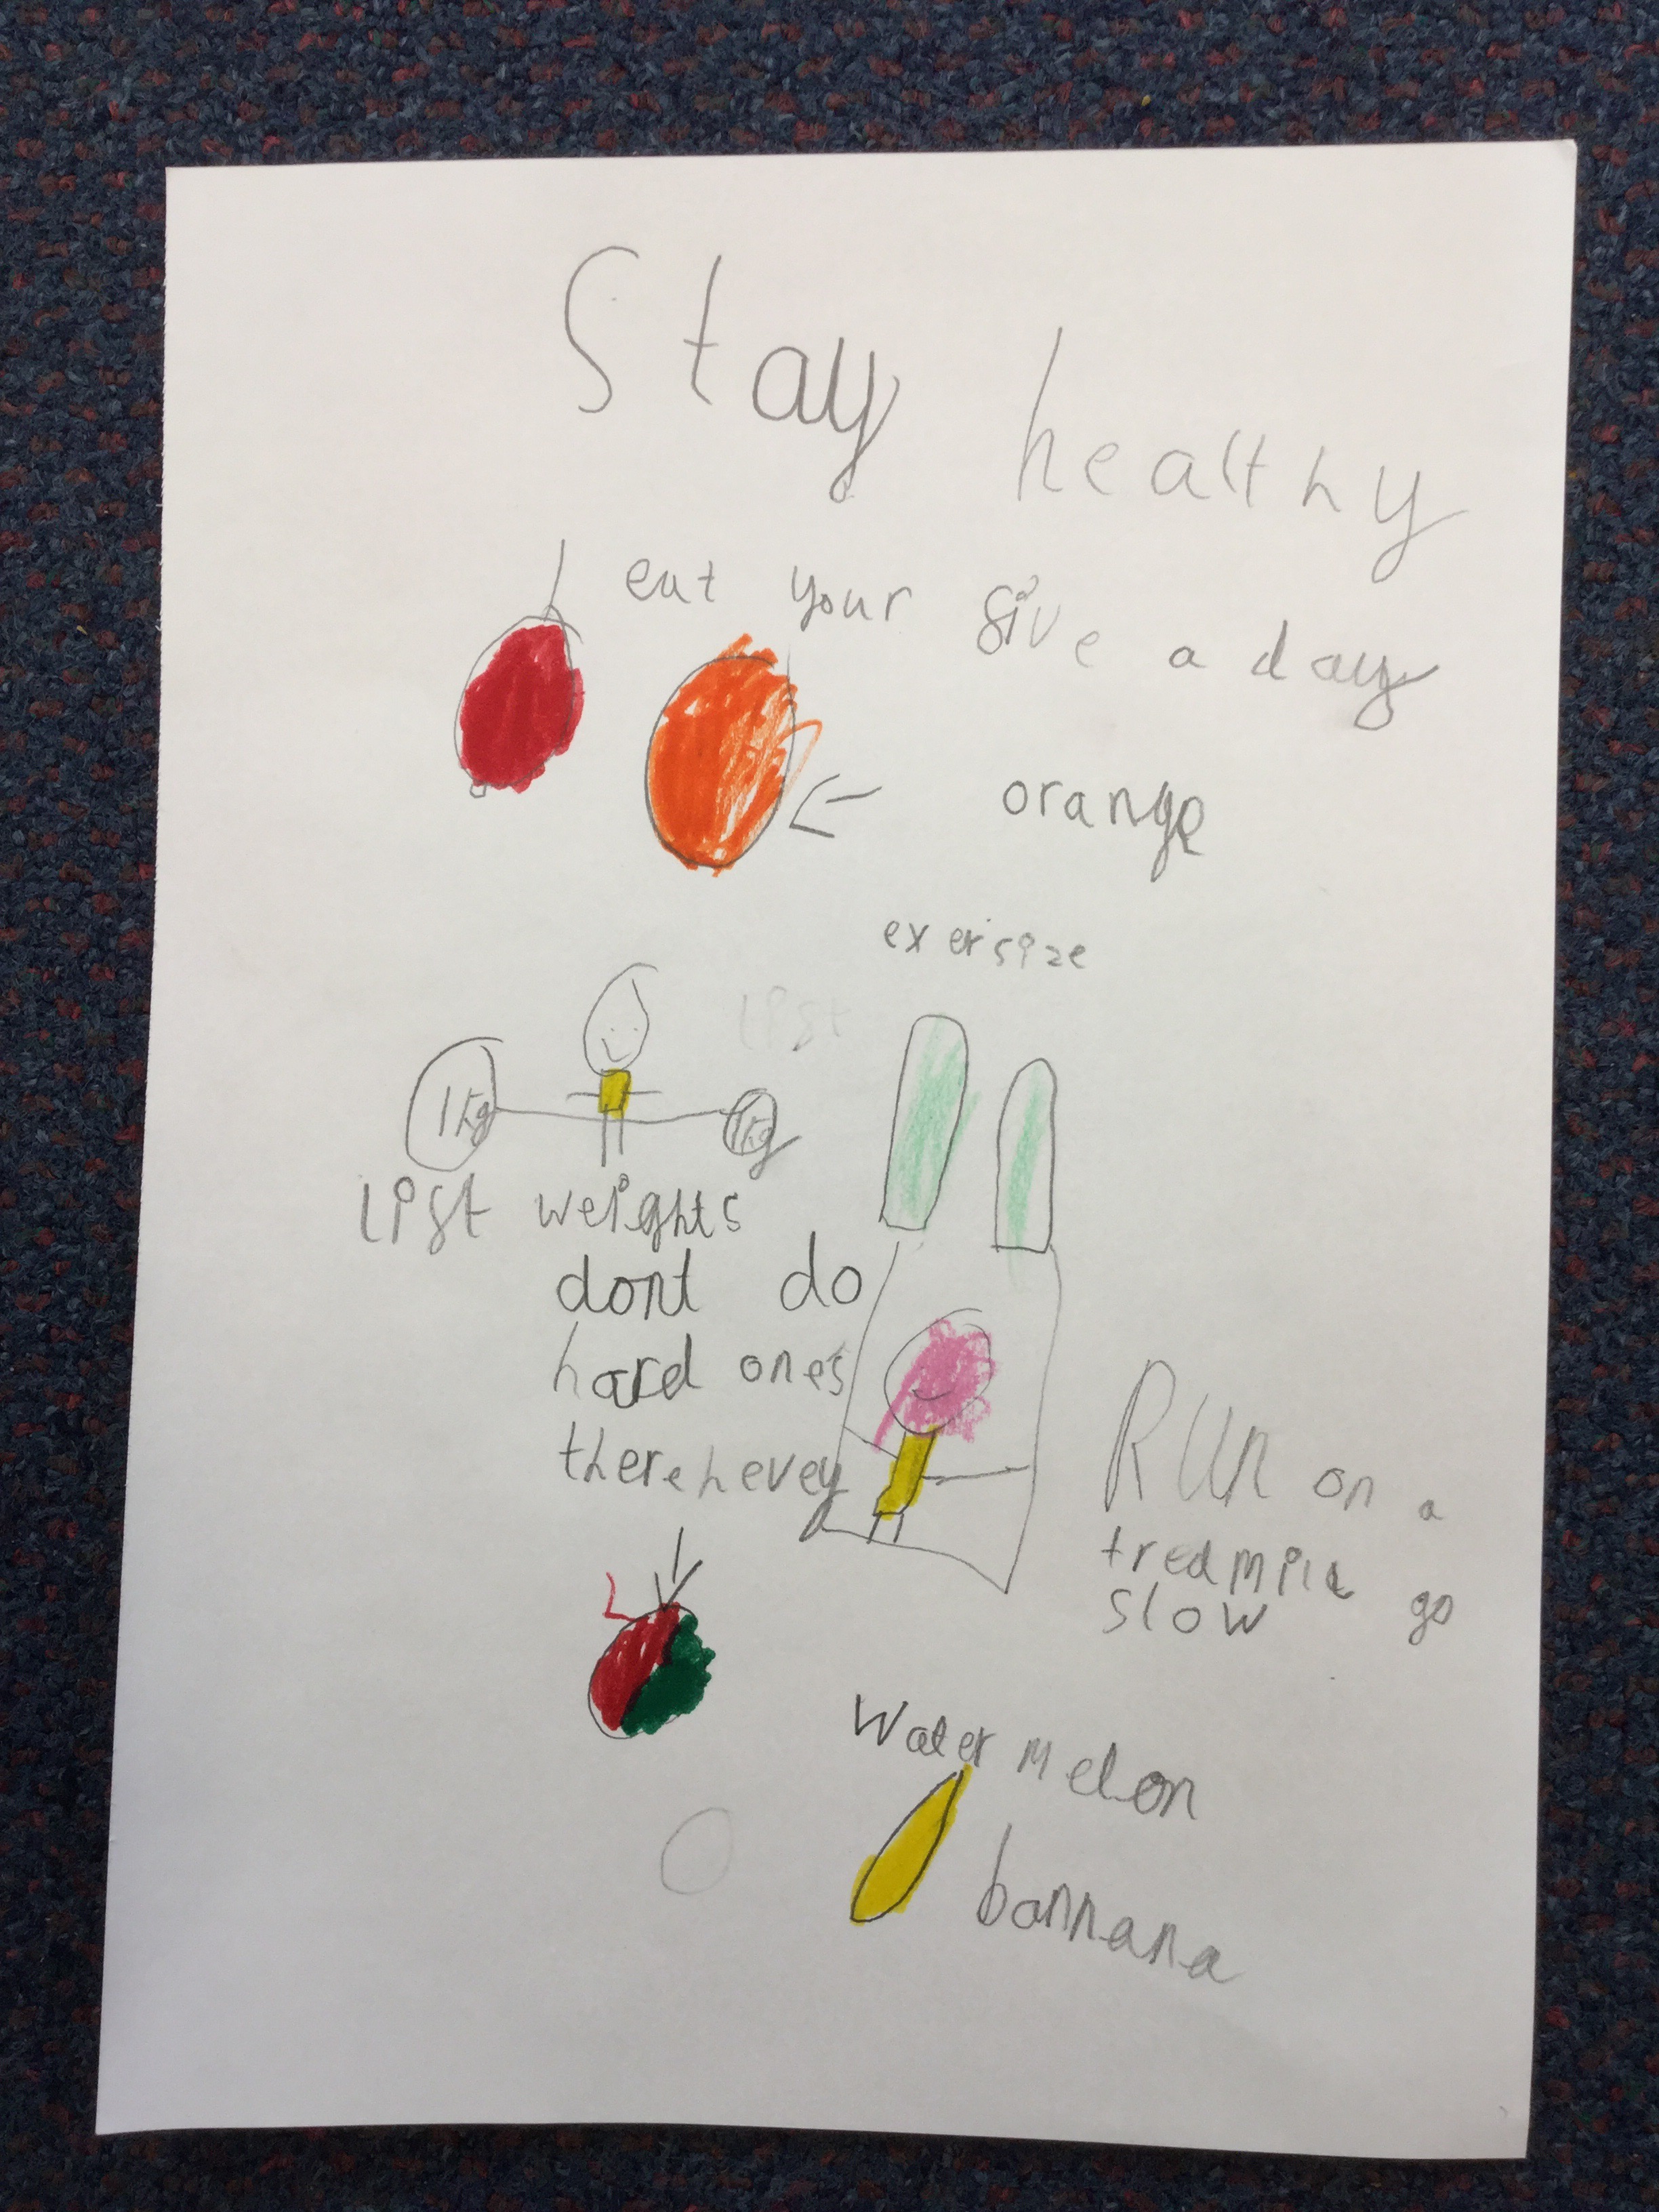 Stay healthy
eat your five a day
orange
exersize
lift
1kg
1kg
lift weights
dont do
hard ones
there hevey
Run on a
tredmile go
slow
Water melon
bannana